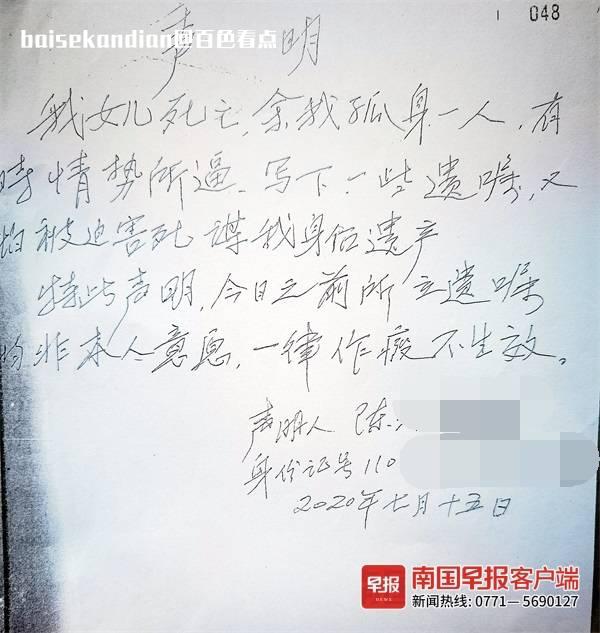 048
baisekandian@百色看点
声 明
我女儿死亡,余我孤身一人,有
时情势所逼、写下一些遗嘱,又
怕被迫害死谋我身后遗产
特此声明,今日之前所立遗嘱
均非本人意愿,一律作废不生效。
声明人 陈
身份证号110
2020年七月十五日
早报
NEWS
南国早报客户端
新闻热线:0771—5690127